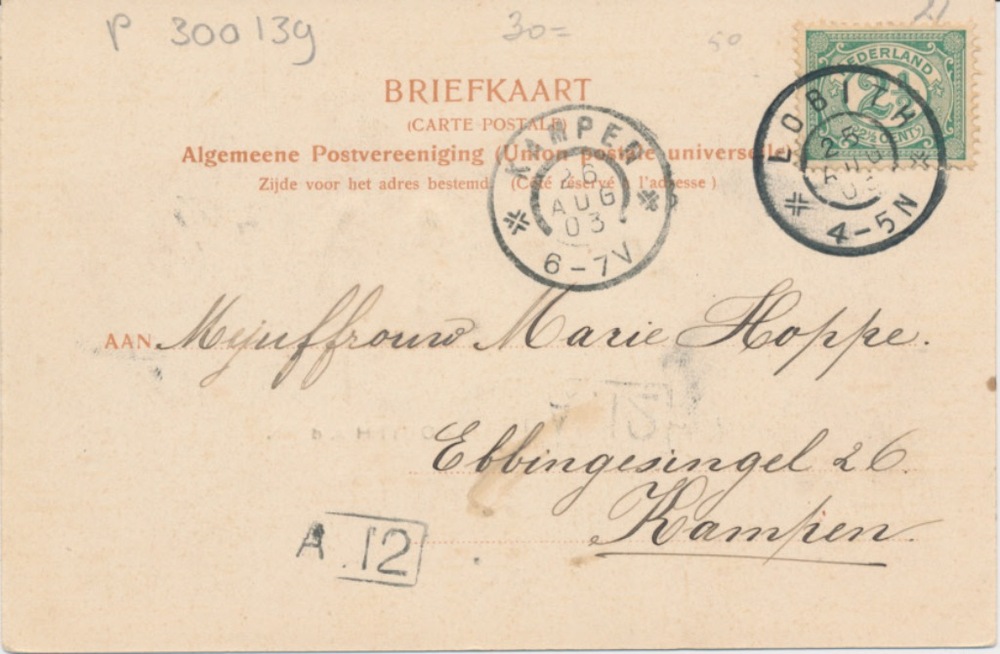 P 300139 30= 50 21
NEDERLAND
2½
(2½ CENT)
LOBITH
25
AUG
03
4-5N
BRIEFKAART
(CARTE POSTALE)
Algemeene Postvereeniging (Union postale universelle)
Zijde voor het adres bestemd. (Côté réservé à l'adresse)
KAMPEN
26
AUG
03
6-7V
AAN Mejuffrouw Marie Hoppe.
Ebbingesingel 26.
Kampen.
A 12